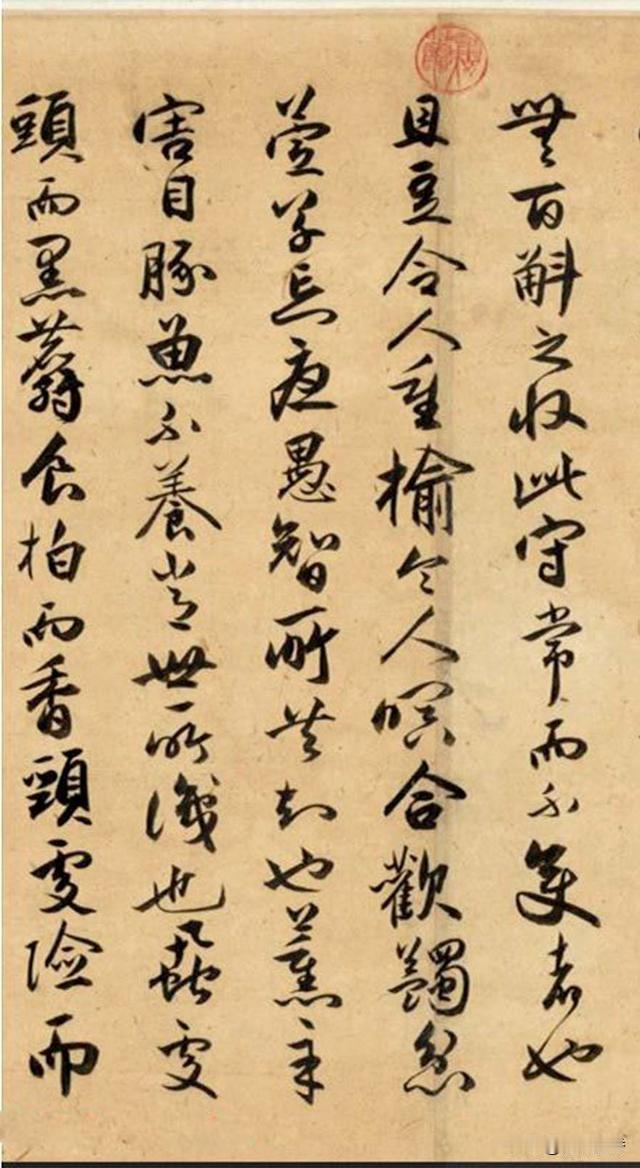 無百斛之收此守常而不變者也
且豆令人重榆令人瞑合歡蠲忿
萱草忘憂愚智所共知也薰辛
害目豚魚不養當世所識也蝨處
頭而黑麝食柏而香頸處險而